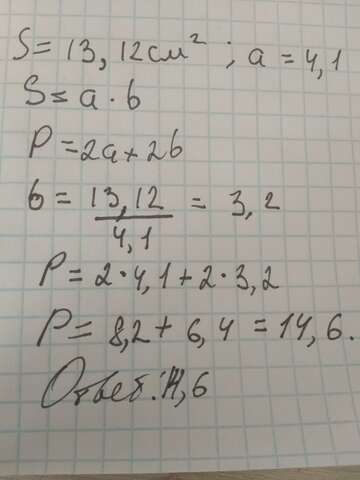 S = 13,12 см² ; a = 4,1
S = a · b
P = 2a + 2b
b = 13,12 / 4,1 = 3,2
P = 2 · 4,1 + 2 · 3,2
P = 8,2 + 6,4 = 14,6.
Ответ: 14,6